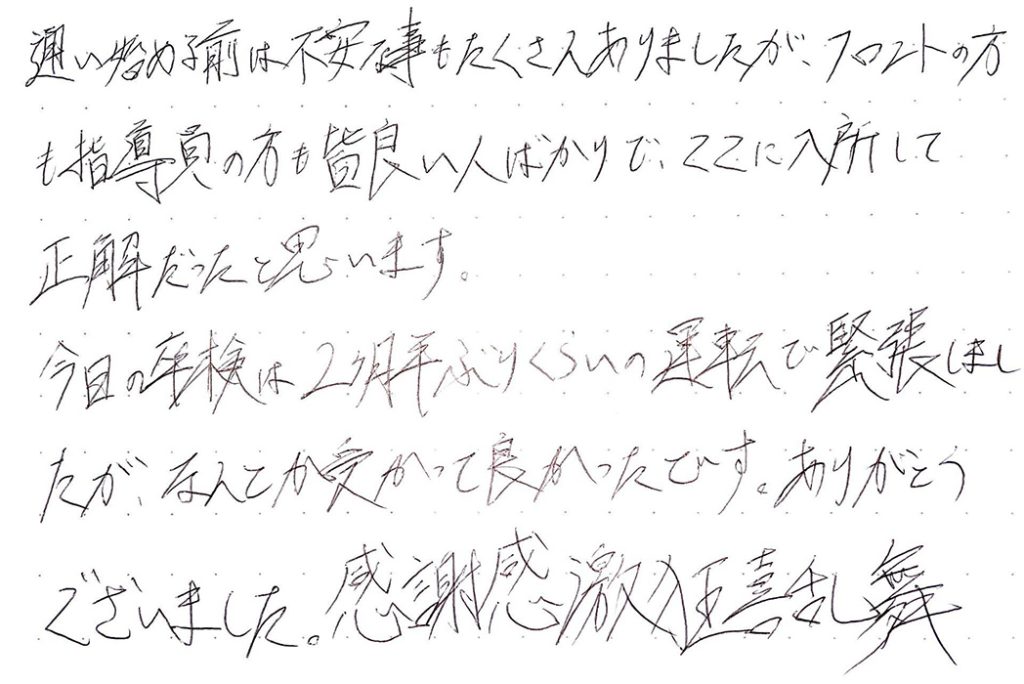 通い始める前は不安な事もたくさんありましたが、フロントの方
も指導員の方も皆良い人ばかりで、ここに入所して
正解だったと思います。
今日の卒検は2ヶ月半ぶりくらいの運転で緊張しまし
たが、なんとか受かって良かったです。ありがとう
ございました。感謝感激狂喜乱舞